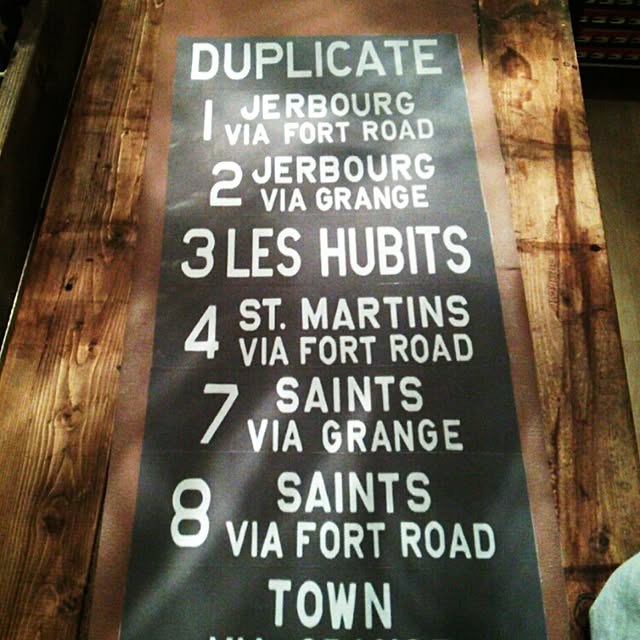 DUPLICATE
1 JERBOURG
VIA FORT ROAD
2 JERBOURG
VIA GRANGE
3 LES HUBITS
4 ST. MARTINS
VIA FORT ROAD
7 SAINTS
VIA GRANGE
8 SAINTS
VIA FORT ROAD
TOWN